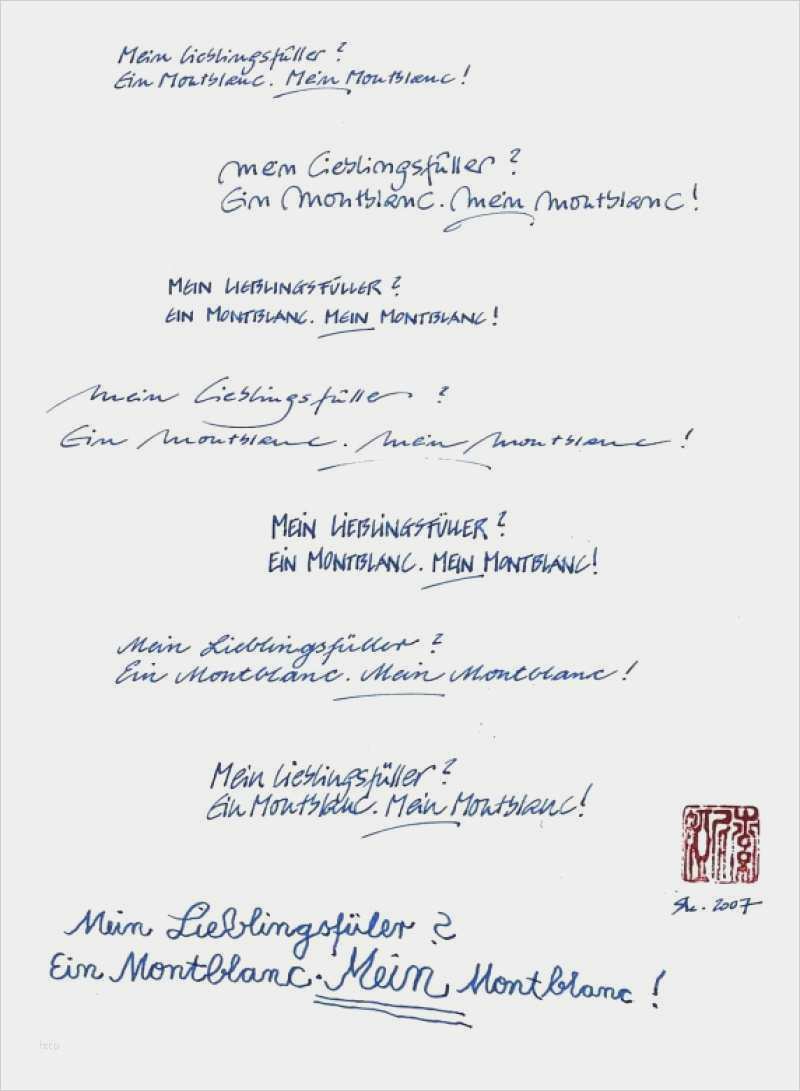 Mein Lieblingsfüller?
Ein Montblanc. Mein Montblanc!
mein Lieblingsfüller?
Ein Montblanc. mein montblanc!
MEIN LIEBLINGSFÜLLER?
EIN MONTBLANC. MEIN MONTBLANC!
Mein Lieblingsfüller?
Ein Montblanc. Mein Montblanc!
MEIN LIEBLINGSFÜLLER?
EIN MONTBLANC. MEIN MONTBLANC!
Mein Lieblingsfüller?
Ein Montblanc. Mein Montblanc!
Mein Lieblingsfüller?
Ein Montblanc. Mein Montblanc!
2007
Mein Lieblingsfüler?
Ein Montblanc. Mein Montblanc!